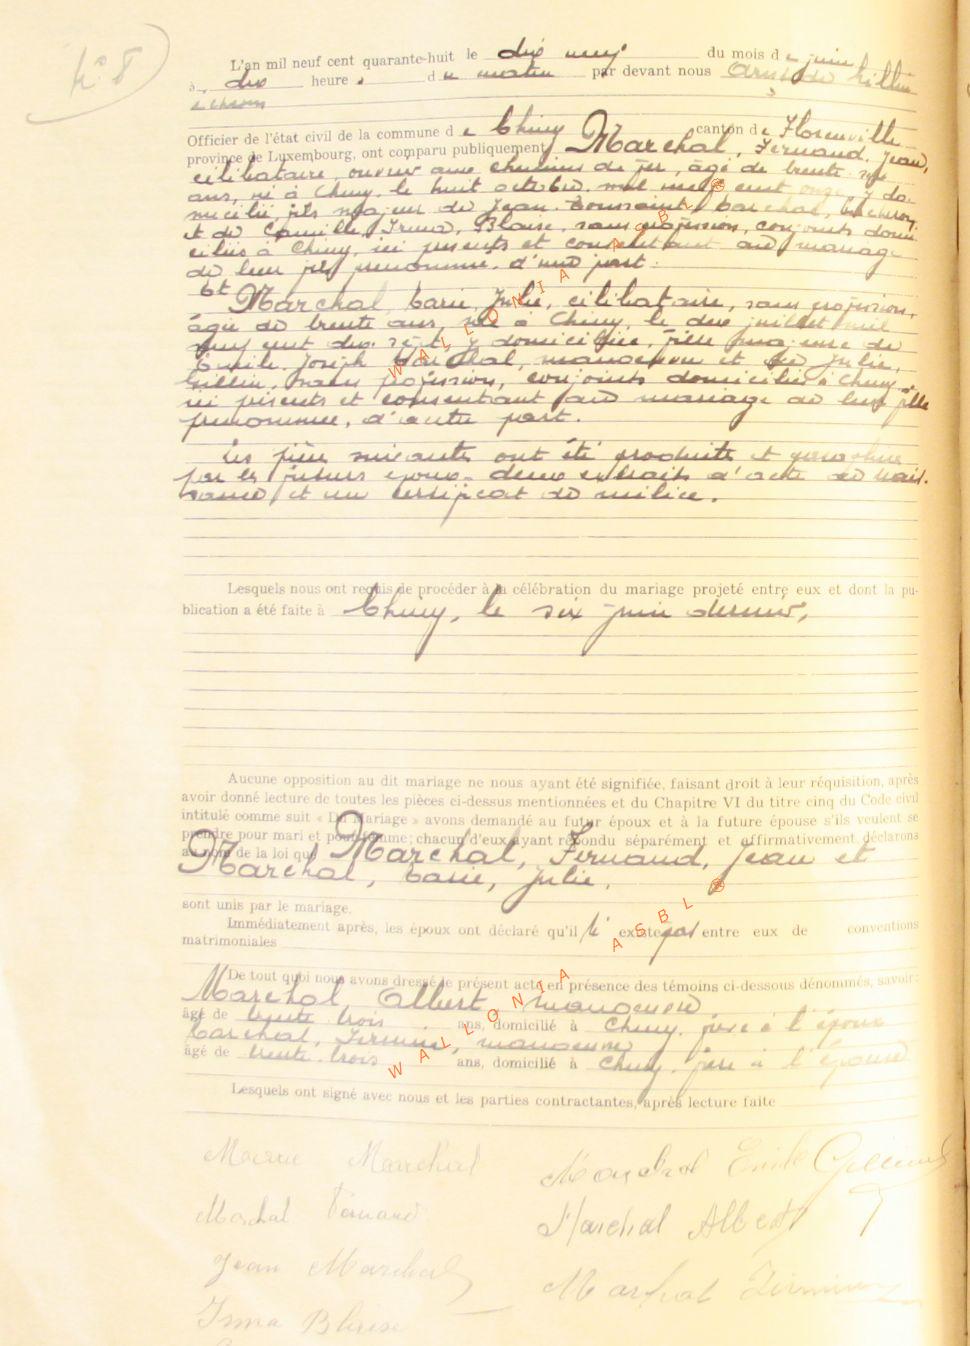 N° 8
L'an mil neuf cent quarante-huit le dix neuf du mois de juin
à dix heures du matin par devant nous Gillin
échevin
Officier de l'état civil de la commune de Chiny canton de Florenville
province de Luxembourg, ont comparu publiquement Marchal, Fernand, Jean,
célibataire, ouvrier aux chemins de fer, âgé de trente six
ans, né à Chiny, le huit octobre mil neuf cent onze, y do-
micilié, fils majeur de Jean Toussaint Marchal, bûcheron,
et de Camille, Irma, Blaise, sans profession, conjoints domi-
ciliés à Chiny, ici présents et consentant au mariage
de leur fils prénommé, d'une part.
Et Marchal, Marie, Julie, célibataire, sans profession,
âgée de trente ans, née à Chiny, le deux juillet mil
neuf cent dix sept, y domiciliée, fille majeure de
Emile Joseph Marchal, manoeuvre et de Julie,
Gillin, sans profession, conjoints domiciliés à Chiny
ici présents et consentant au mariage de leur fille
prénommée, d'autre part.
Les pièces suivantes ont été produites et
par les futurs époux: deux extraits d'acte de nais-
sance et un certificat de milice.
Lesquels nous ont requis de procéder à la célébration du mariage projeté entre eux et dont la pu-
blication a été faite à Chiny, le six juin dernier,
Aucune opposition au dit mariage ne nous ayant été signifiée, faisant droit à leur réquisition, après
avoir donné lecture de toutes les pièces ci-dessus mentionnées et du Chapitre VI du titre cinq du Code civil
intitulé comme suit « Du Mariage » avons demandé au futur époux et à la future épouse s'ils veulent se
prendre pour mari et pour femme; chacun d'eux ayant répondu séparément et affirmativement, déclarons
au nom de la loi que Marchal, Fernand, Jean et
Marchal, Marie, Julie,
sont unis par le mariage.
Immédiatement après, les époux ont déclaré qu'il n'existe pas entre eux de conventions
matrimoniales
De tout quoi nous avons dressé le présent acte en présence des témoins ci-dessous dénommés, savoir:
Marchal, Albert, manoeuvre
âgé de trente trois ans, domicilié à Chiny, frère à l'époux
Marchal, Firmin, manoeuvre
âgé de trente trois ans, domicilié à Chiny, frère à l'épouse
Lesquels ont signé avec nous et les parties contractantes, après lecture faite
Marchal Emile Gillin
Marie Marchal
Marchal Fernand
Marchal Albert
Jean Marchal
Marchal Firmin
Irma Blaise
WALLONIA ASBL ®
WALLONIA ASBL ®